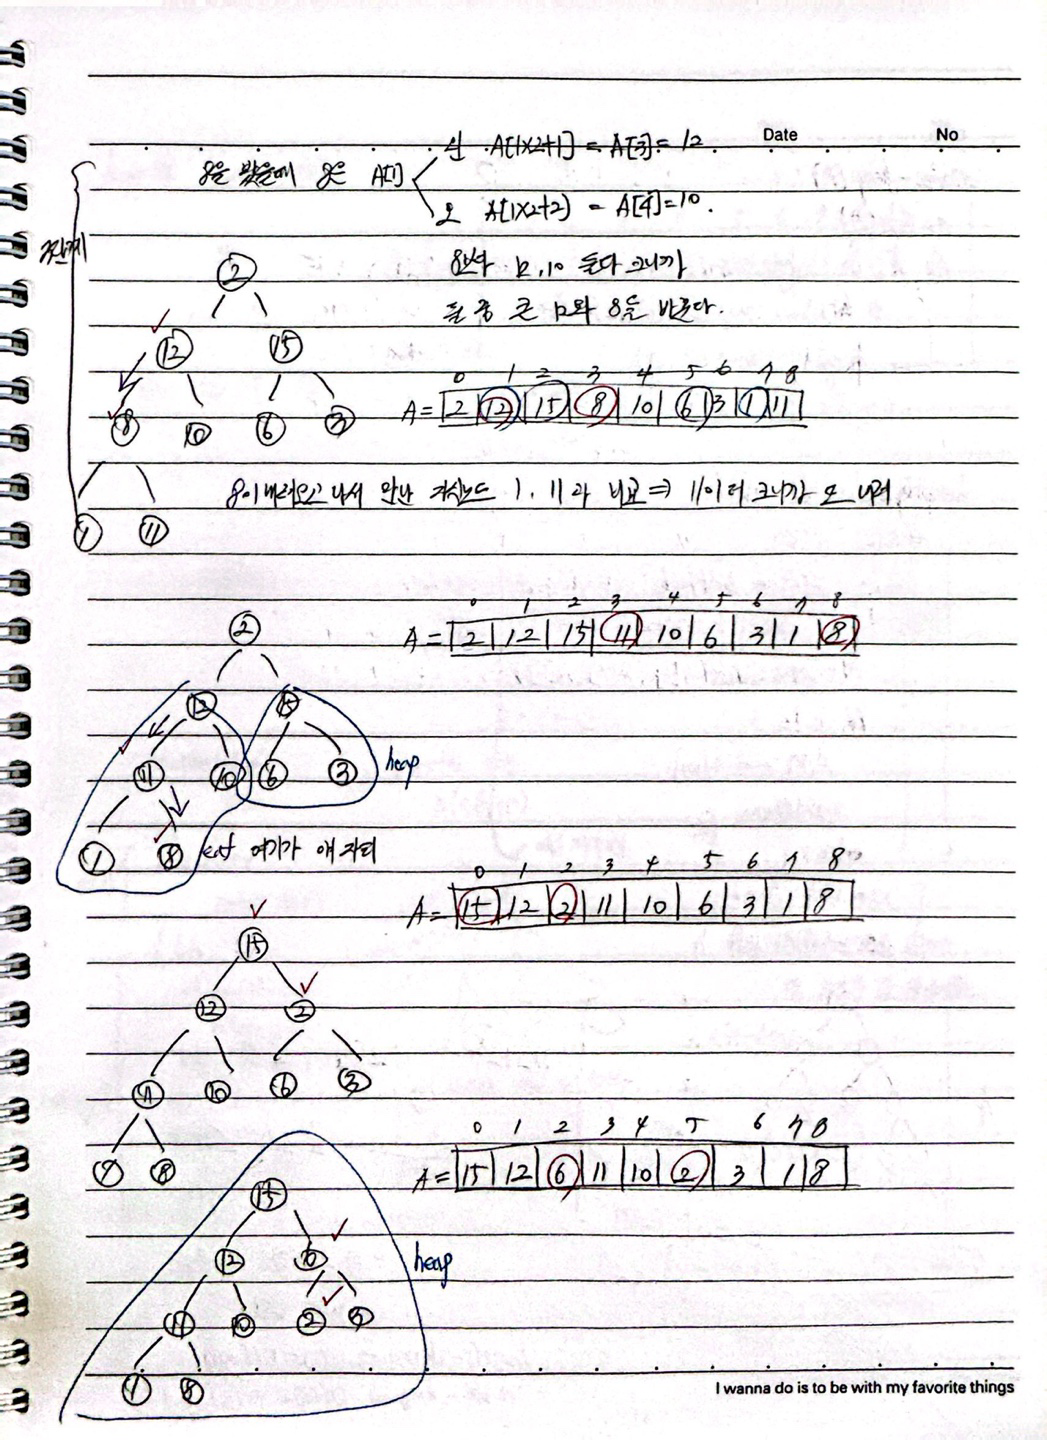 Date No
8을 봤을때 8은 A[1]
왼 A[1x2+1] = A[3] = 12
오 A[1x2+2) = A[4]=10.
8보다 12, 10 둘다 크니까
둘 중 큰 12와 8을 바꾼다.
2
12 15
8 10 6 3
1 11
0 1 2 3 4 5 6 7 8
A= 2 12 15 8 10 6 3 1 11
8이 내려오고 나서 만난 자식노드 1, 11과 비교 ⇒ 11이 더 크니까 또 내려.
0 1 2 3 4 5 6 7 8
A= 2 12 15 11 10 6 3 1 8
2
12 15
11 10 6 3
heap
1 8
여기가 얘 자리
0 1 2 3 4 5 6 7 8
A= 15 12 2 11 10 6 3 1 8
15
12 2
11 10 6 3
1 8
0 1 2 3 4 5 6 7 8
A= 15 12 6 11 10 2 3 1 8
15
12 6
heap
11 10 2 3
1 8
I wanna do is to be with my favorite things